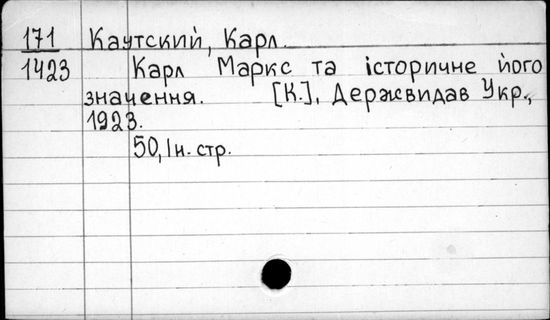 171 Каутский, Карл.
1423 Карл Маркс та історичне його
значення. [К.], Держвидав Укр.,
1923.
50, 1 н. стр.